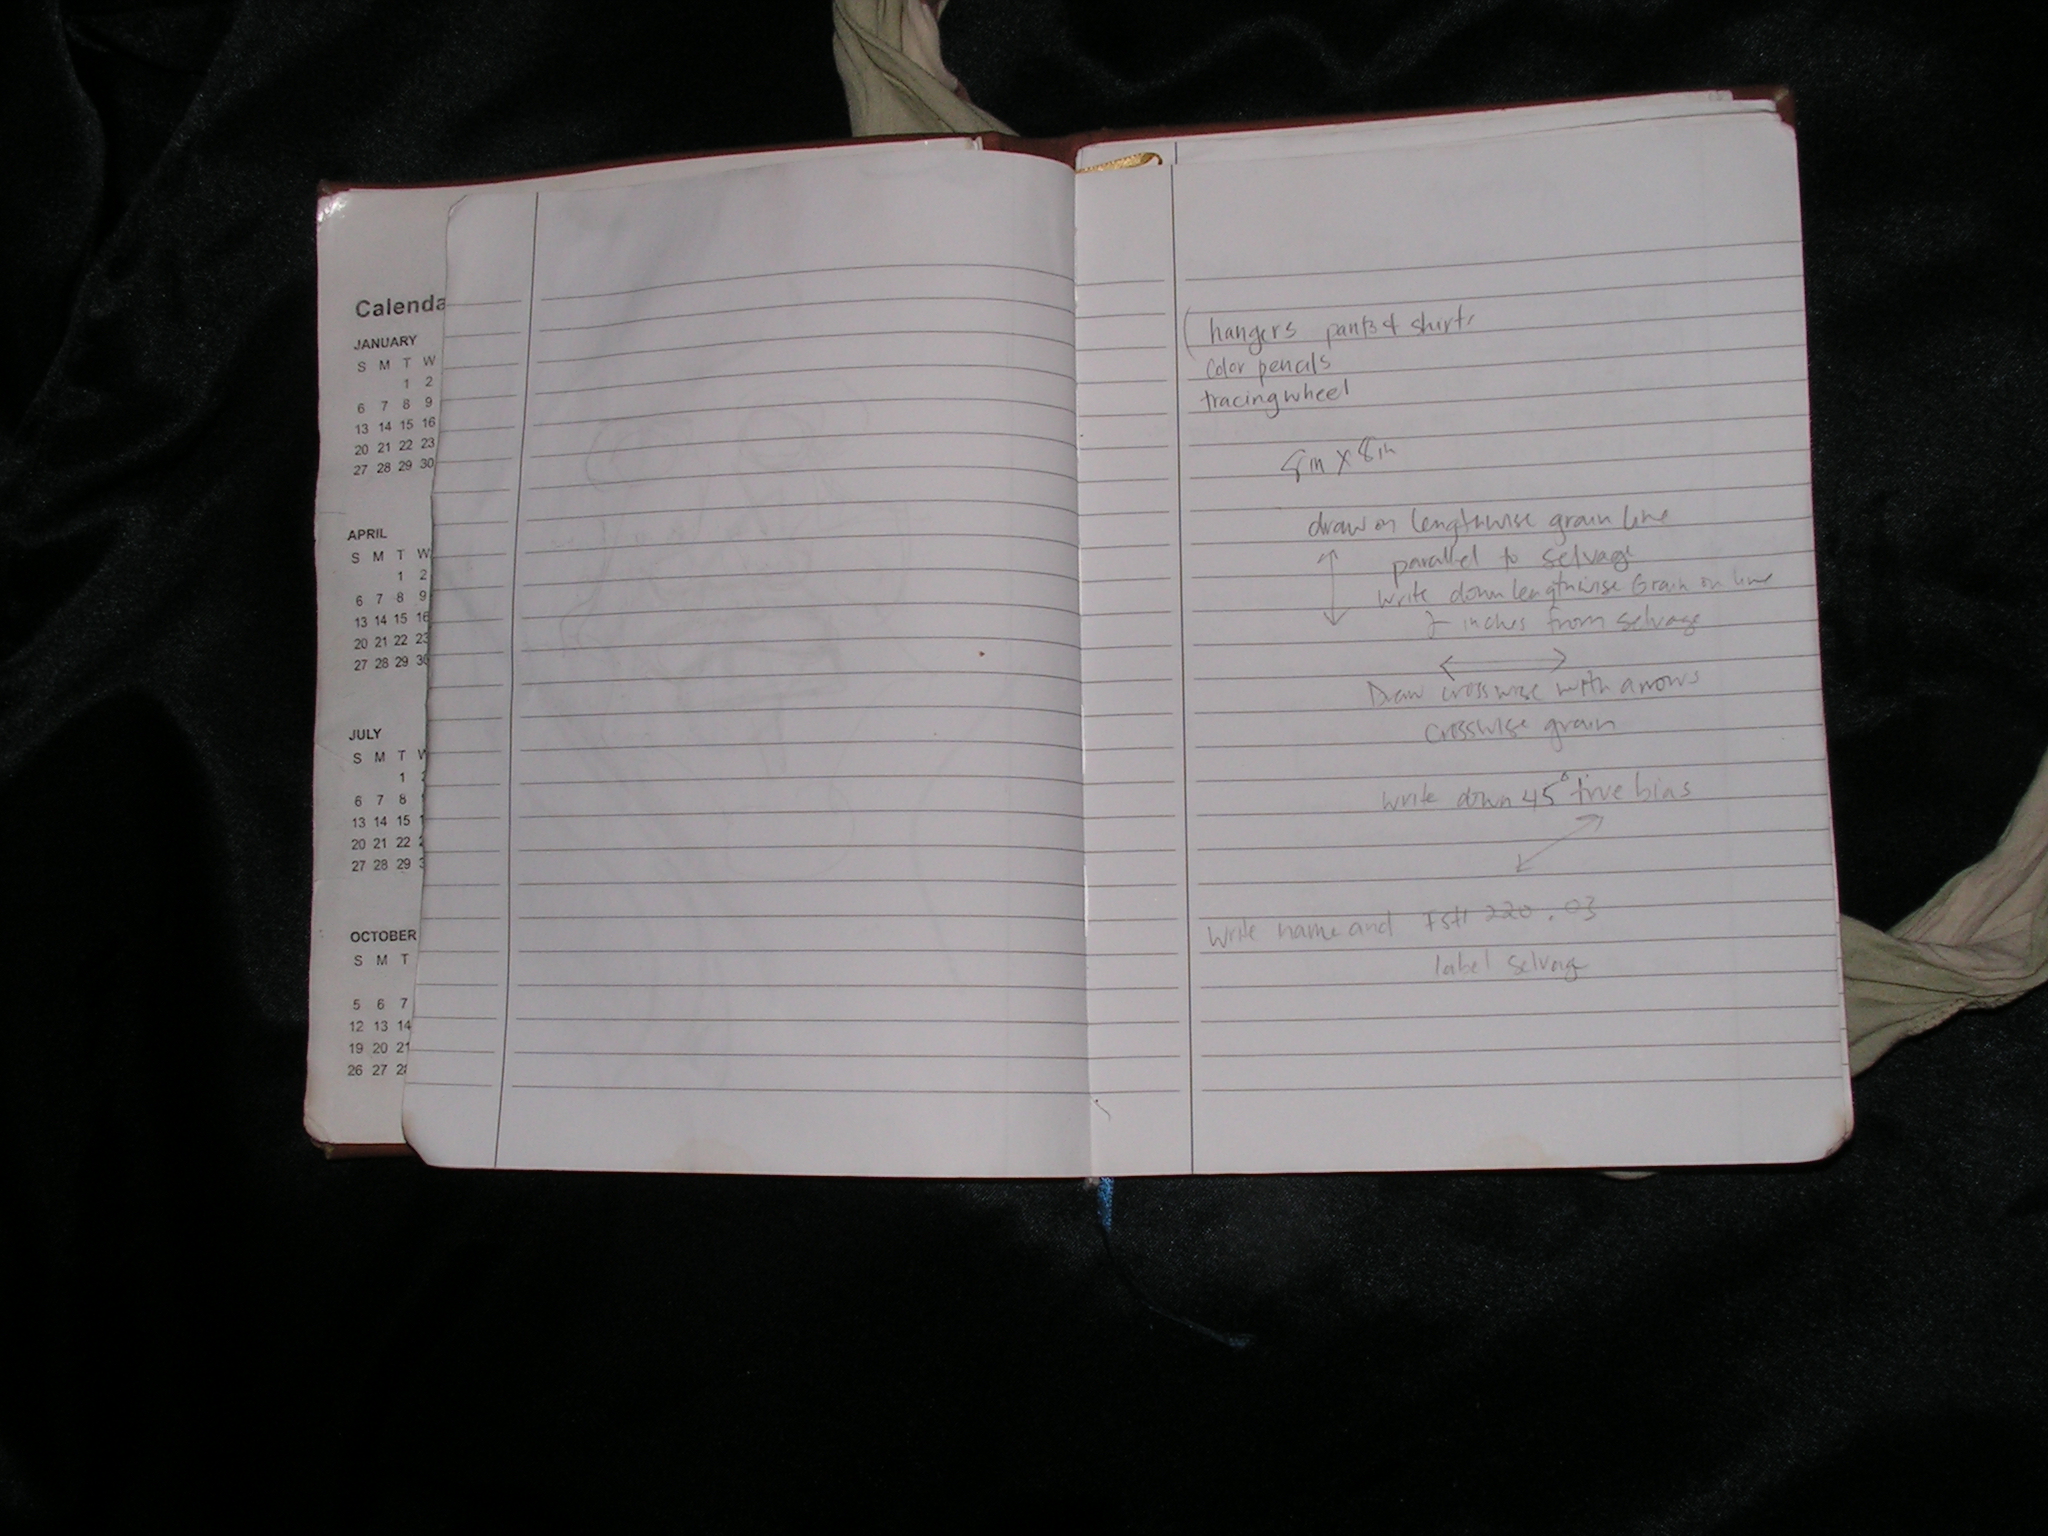 Calenda
JANUARY
S M T W
1 2
6 7 8 9
13 14 15 16
20 21 22 23
27 28 29 30
APRIL
S M T W
1 2
6 7 8 9
13 14 15 16
20 21 22 23
27 28 29 30
JULY
S M T
1
6 7 8
13 14 15
20 21 22
27 28 29
OCTOBER
S M T
5 6 7
12 13 14
19 20 21
26 27 28
hangers pants & shirts
color pencils
tracing wheel
8in x 8in
draw on lengthwise grain line
parallel to selvage
write down lengthwise Grain on line
2 inches from selvage
Draw crosswise with arrows
crosswise grain
write down 45° true bias
write name and 220.03
label selvage